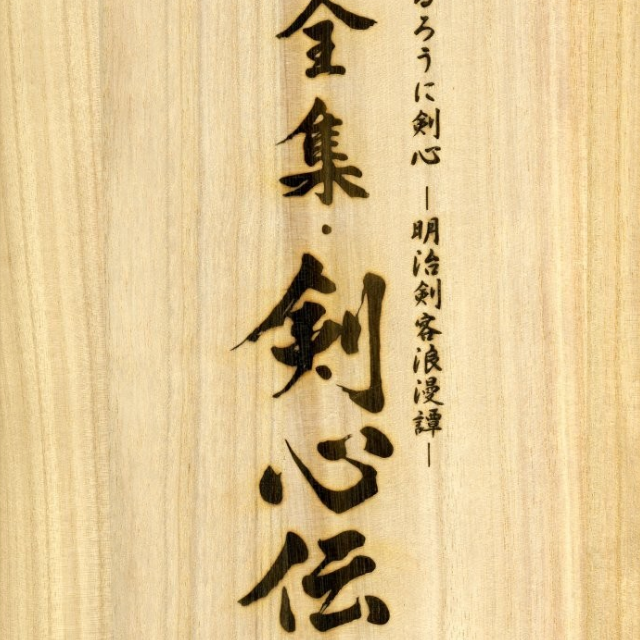 るろうに剣心―明治剣客浪漫譚―
全集・剣心伝